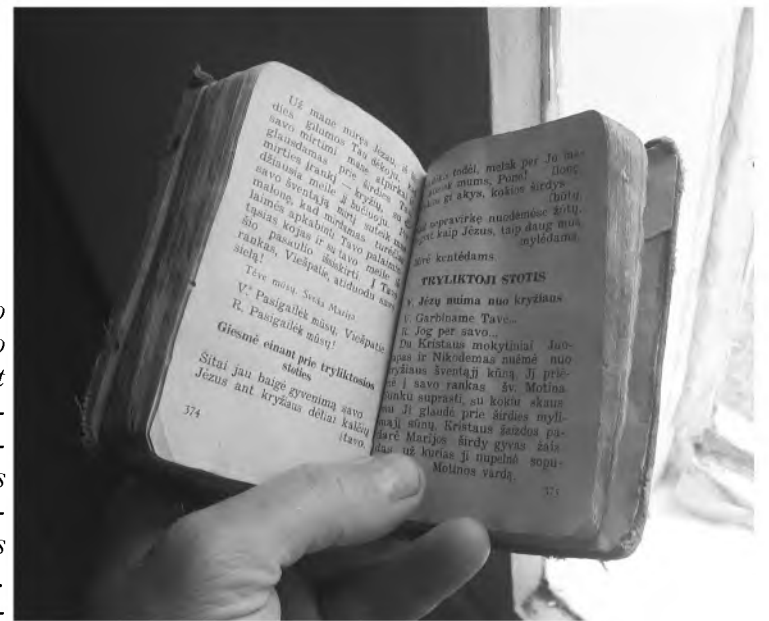 Už mane miręs Jėzau, iš
dies gilumos Tau dėkoju,
savo mirtimi mane atpirkai.
glausdamas prie širdies Ta
mirties įrankį — kryžių, su
džiausia meile jį bučiuoju. Pe
savo šventąją mirtį suteik man
malonę, kad mirdamas turėčiau
laimės apkabinti Tavo palaimin
tąsias kojas ir su tavo meile iš
šio pasaulio išsiskirti. Į Tavo
rankas, Viešpatie, atiduodu savo
sielą!
Tėve mūsų. Sveika Marija
V. Pasigailėk mūsų, Viešpatie
R. Pasigailėk mūsų!
Giesmė einant prie tryliktosios
stoties
Šitai jau baigė gyvenimą savo
Jėzus ant kryžiaus dėliai kalčių
(tavo,
374
todėl, melsk per Jo ma-
mums, Pone! (lonę,
gi akys, kokios širdys
(būtų,
nepravirkę nuodėmėse žūtų,
kaip Jėzus, taip daug mus
mylėdama,
kentėdama
TRYLIKTOJI STOTIS
V. Jėzų nuima nuo kryžiaus
V. Garbiname Tave...
R. Jog per savo...
Du Kristaus mokytiniai Juo-
zapas ir Nikodemas nuėmė nuo
kryžiaus šventąjį kūną. Jį priė-
mė į savo rankas šv. Motina.
Sunku suprasti, su kokiu skaus
mu Ji glaudė prie širdies myli-
mąjį sūnų. Kristaus žaizdos pa-
darė Marijos širdy gyvas žaiz
das, už kurias ji nupelnė sopu-
Motinos vardą.
375